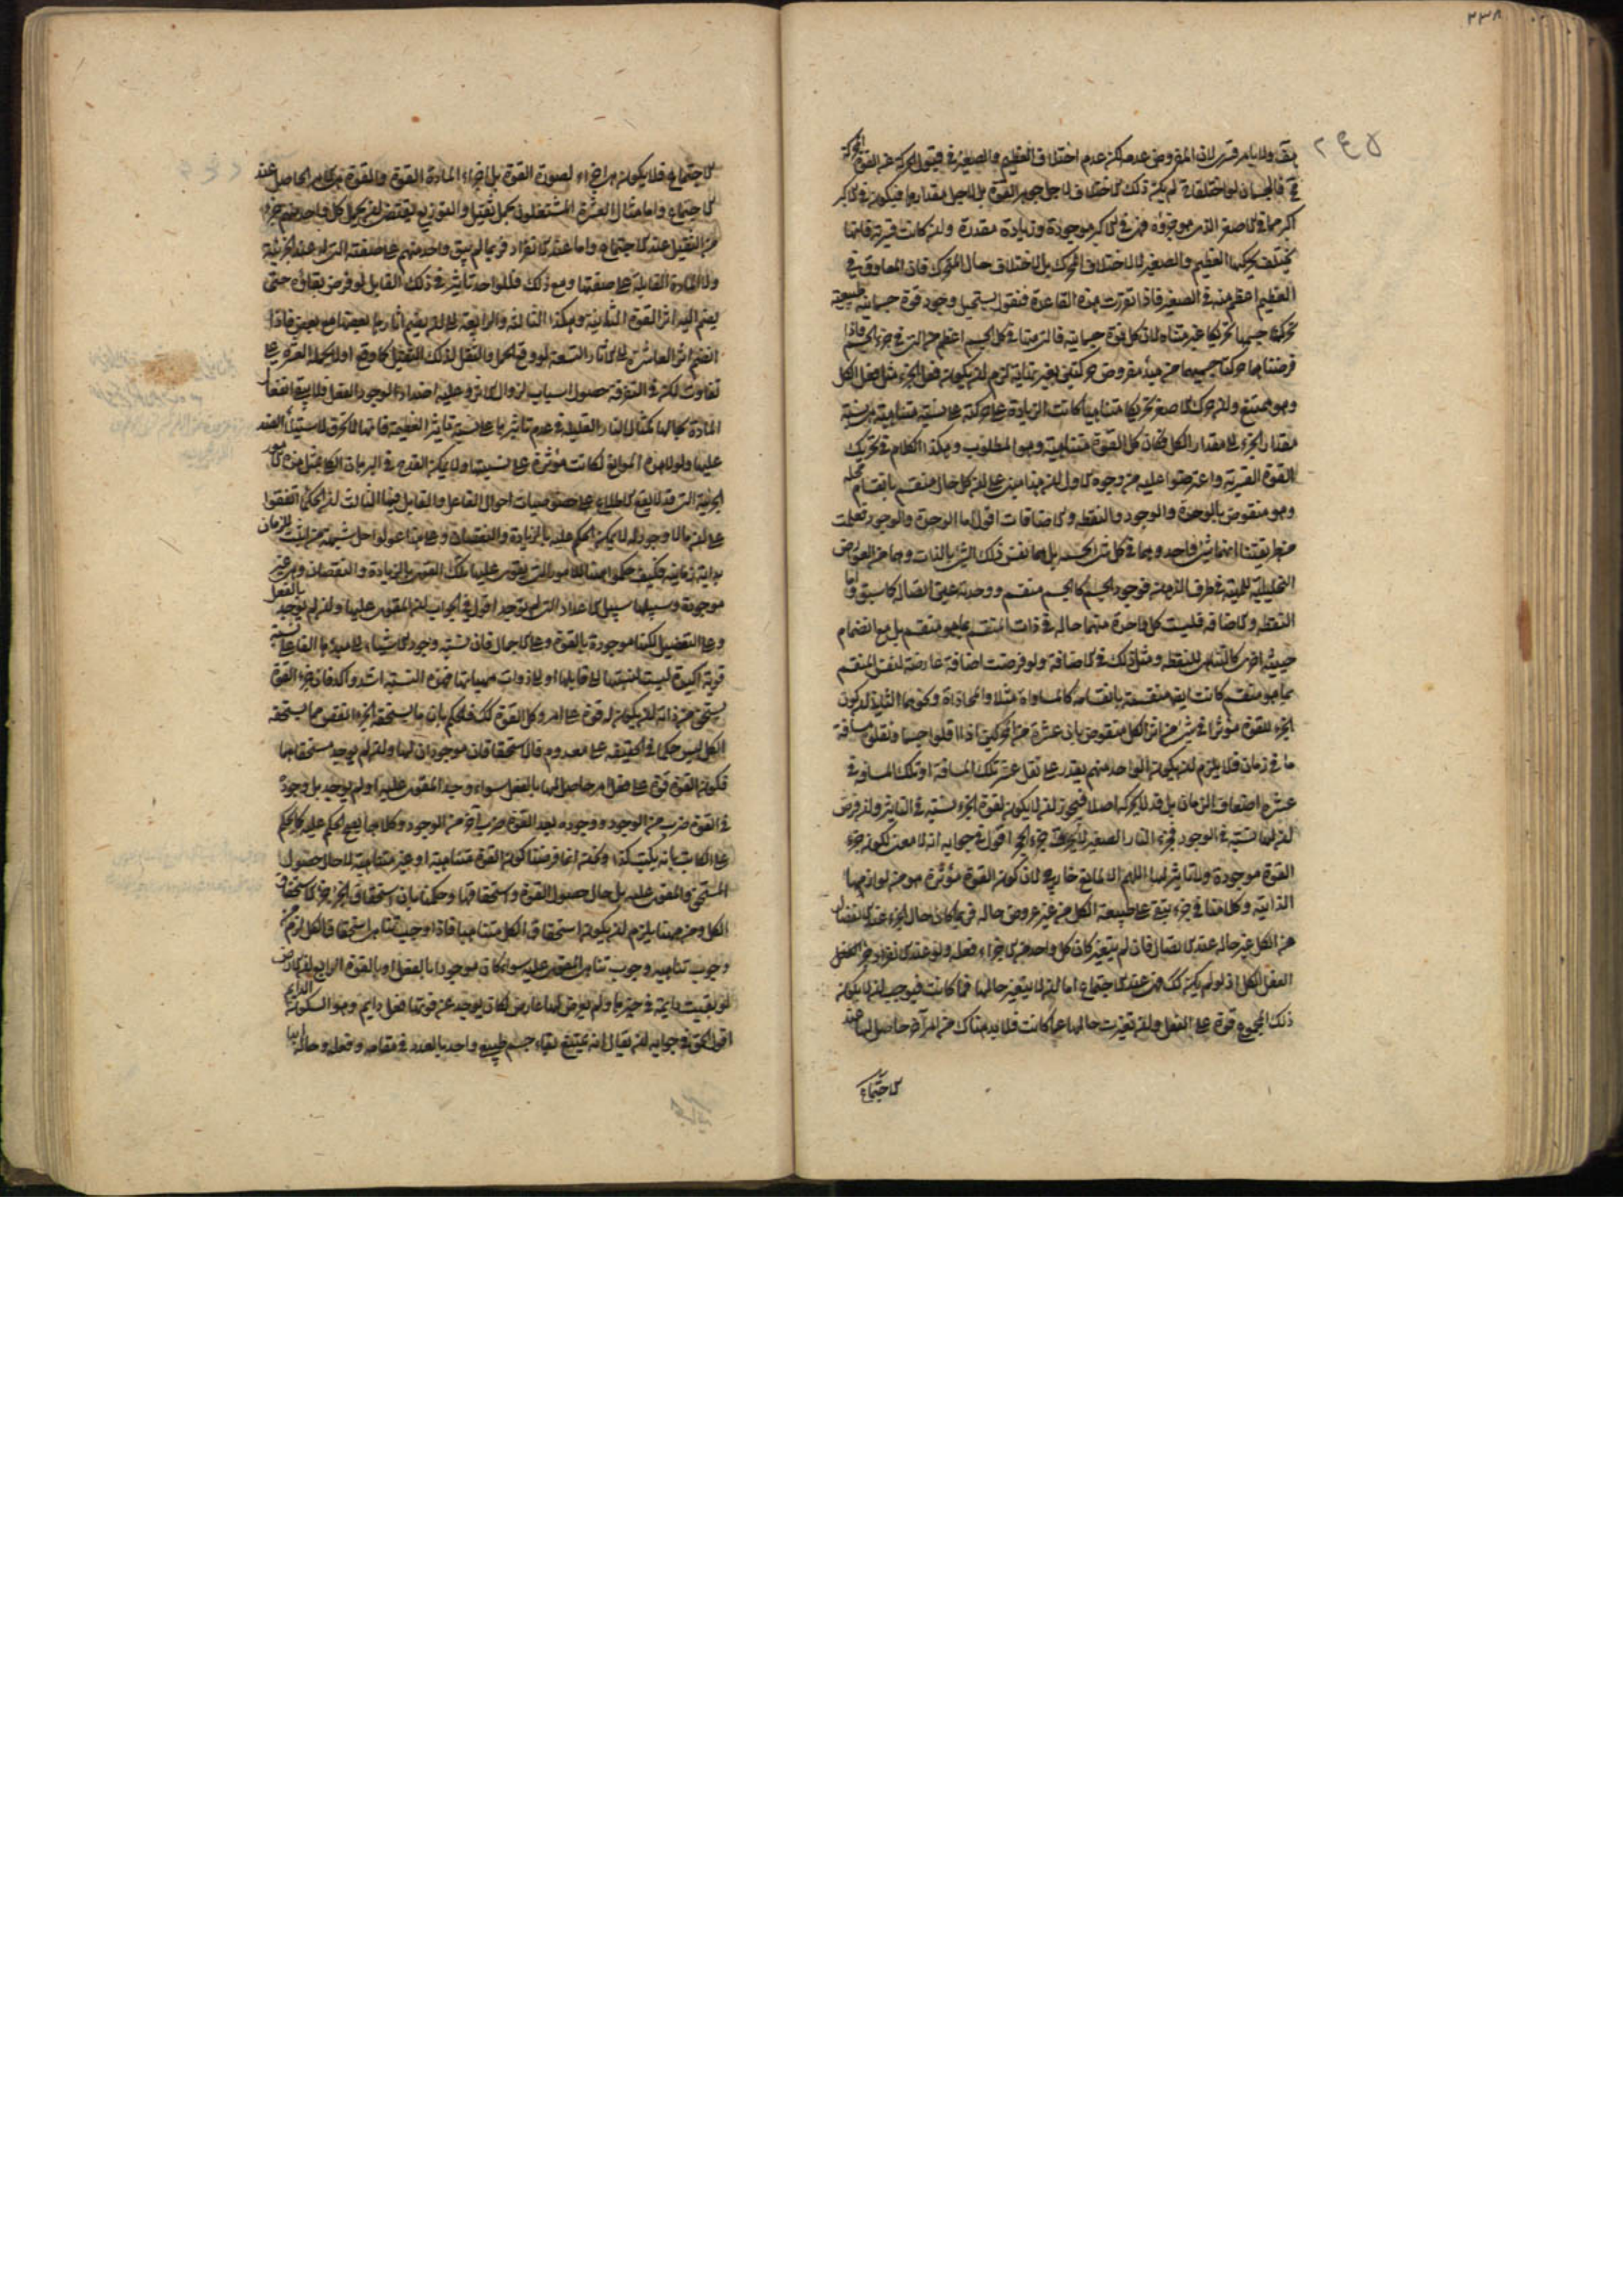 ٢٣٨
٢٤٥
ولا بامر قسرى لان المفروض عدمه لكن عدم اختلاف العظيم والصغير فى قبول الحركة عن القوة
فالجسمان لو اختلفا لم يكن ذلك الاختلاف لاجل جوهر القوة بل لاجل مقدارها فيكون فى الاكبر
اكثر مما فى الاصغر الذى هو جزؤه فهى فى الاكبر موجودة وزيادة مقدرة وان كانت قسرية فانما
يختلف تحريكها العظيم والصغير لا لاختلاف المحرك بل لاختلاف حال المتحرك فان المعاوق فى
العظيم اعظم منه فى الصغير فاذا تقررت هذه القاعدة فنقول يستحيل وجود قوة جسمانية طبيعية
تحرك جسمها تحريكا غير متناه لان كل قوة جسمانية فالتى منها فى كل الجسم اعظم من التى فى جزء الجسم فاذا
فرضنا هما حركتا جسميهما من مبدأ مفروض حركتين بغير نهاية لزم ان يكون فعل الجزء مثل فعل الكل
وهو ممتنع وان حرك الاصغر تحريكا متناهيا كانت الزيادة على حركته على نسبة متناهية
مقدار الجزء الى مقدار الكل فكان كل القوة متناهية وهو المطلوب وهكذا الكلام فى تحريك
القوة القسرية واعترضوا عليه من وجوه الاول ان هذا مبنى على ان كل حال منقسم بانقسام محله
وهو منقوض بالوحدة والوجود والنقطة والاضافات اقول اما الوحدة والوجود فعلمت
من طريقتنا انهما شئ واحد وهما فى كل شئ بحسبه بل هما نفس ذلك الشئ بالذات وهما من العوارض
التحليلية للمهية فى ظرف الذهن فوجود الجسم كالجسم منقسم ووحدته عين اتصاله كما سبق واما
النقطة والاضافة فليست كل واحدة منهما حالة فى ذات المنقسم بما هو منقسم بل مع انضمام
حيثية اخرى كالتناهى للنقطة ومثل ذلك فى الاضافة ولو فرضت اضافة عارضة لنفس المنقسم
بما هو منقسم كانت ايضا منقسمة بانقسامه كالمساواة مثلا والمحاذاة وكونهما الثانى ان كون
الجزء للقوة مؤثرا فى شئ من اثر الكل منقوض بان عشرة من المحركين اذا اقلوا جسما ونقلوه مسافة
ما فى زمان فلا يلزم ان يكون الواحد منهم يقدر على نقل عشر تلك المسافة او تلك المسافة فى
عشرة اضعاف الزمان بل قد لا يحركه اصلا فيجوز ان لا يكون لقوة الجزء نسبة فى التاثير وان فرض
ان لها نسبة فى الوجود فجزء النار الصغير لا يحرق جزء الجزء اقول فى جوابه انه لا معنى لكون جزء
القوة موجودة ولا تاثير لها اللهم الا لمانع خارجى لان كون القوة مؤثرة هو من لوازمها
الذاتية وكلامنا فى جزء يبقى على طبيعة الكل من غير عروض حالة فربما كان حال الجزء عند الانفصال
من الكل غير حاله عند الاتصال فان لم يتغير كان كل واحد من الاجزاء فعله ولو عند الانفراد جزء الفعل
لفعل الكل اذ لو لم يكن كذلك فهى عند الاجتماع اما ان لا يتغير حالها فما كانت فيوجب ان لا يكون
ذلك المجموع قوة على الفعل وان تغيرت حالها عما كانت فلابد هناك من امر آخر حاصل لها عند
الاجتماع
الاجتماع فلا يكون هى اجزاء لصورة القوة بل اجزاء المادة القوة والقوة هى الامر الحاصل عند
الاجتماع واما مثال العشرة المشتغلون بحمل ثقيل والتوزيع المقتضى لان يحمل كل واحد منهم جزء
من الثقيل عند الاجتماع واما عند الانفراد فربما لم يبق واحد منهم على صفته التى له عند الجزئية
ولا المادة القابلة على صفتها ومع ذلك فللواحد تاثير فى ذلك القابل لو فرض بقاؤه حتى
ينضم اليه اثر القوة الثانية وهكذا الثالثة والرابعة الى ان ينضم آثارها بعضها مع بعض فاذا
انضم اثر العاشرة الى الآثار التسعة لو وقع الحمل والنقل لذلك الثقيل كما وقع اولا بحمله العشرة بلا
تفاوت لكن فى التفرقة حصول اسباب لزوال الاثر وعليه اضداد الوجود الفعل فلا يبقى انفعال
المادة بحالها كمثال النار القليلة فى عدم تاثيرها على نسبة تاثير العظيمة فانها لا تحرق لاستيلاء الضد
عليها ولولا هذه الموانع لكانت مؤثرة على نسبتها ولا يمكن القدح فى البرهان الكلى بمثل هذه الامور
الجزئية التى قد لا يقع الاطلاع على خصوصيات احوال الفاعل والقابل فيها الثالث ان الحكماء اتفقوا
على ان ما لا وجود له لا يمكن الحكم عليه بالزيادة والنقصان وعلى هذا عولوا حل شبهة من اثبت للزمان
بداية زمانية فكيف حكموا ههنا للامور التى يقوى عليها تلك القوى بالزيادة والنقصان وهى غير
موجودة وسبيلها سبيل الاعداد التى لم يوجد اقول فى الجواب ان المقوى عليها وان لم يوجد بالفعل
وعلى التفصيل لكنها موجودة بالقوة وعلى الاجمال فان نسبة وجود الاشياء الى مبدئها الفاعلى نسبة
قوية اكيدة ليست كنسبتها الى قابلها او الى ذوات مهياتها فهذه النسبة اشد وآكد فان جزء القوة
يستحق من ذاته ان يكون له قوة على امر وكل القوة كذلك فالحكم بان ما يستحقه الجزء انقص مما يستحقه
الكل ليس حكما فى الحقيقة على معدوم فالاستحقاقان موجودان لهما وان لم يوجد مستحقاهما
فكون القوة قوة على فعل امر حاصل لها بالفعل سواء وجد المقوى عليه او لم يوجد بل وجوده
فى القوة ضرب من الوجود ووجوده بعد القوة ضرب آخر من الوجود وكلاهما يصح الحكم عليه كالحكم
على الكاتب بانه يكتب كذا ونحن انما فرضنا كون القوة متناهية او غير متناهية لا حال حصول
المستحق والمقوى عليه بل حال حصول القوة واستحقاقها وحكمنا بان استحقاق الجزء جزء لاستحقاق
الكل ومن هنا يلزم ان يكون استحقاق الكل متناهيا فاذا وجب تناهى استحقاق الكل لزم منه
وجوب تناهيه وجوب تناهى المقوى عليه سواء كان موجودا بالفعل او بالقوة الرابع ان الارض
لو بقيت دايمة فى حيزها ولم يعرض لها عارض لكان يوجد عن قوتها فعل دايم وهو السكون الدائم
اقول الحق فى جوابه ان يقال انه يمتنع بقاء جسم طبيعى واحد بالعدد فى مقامه وفعله وحاله